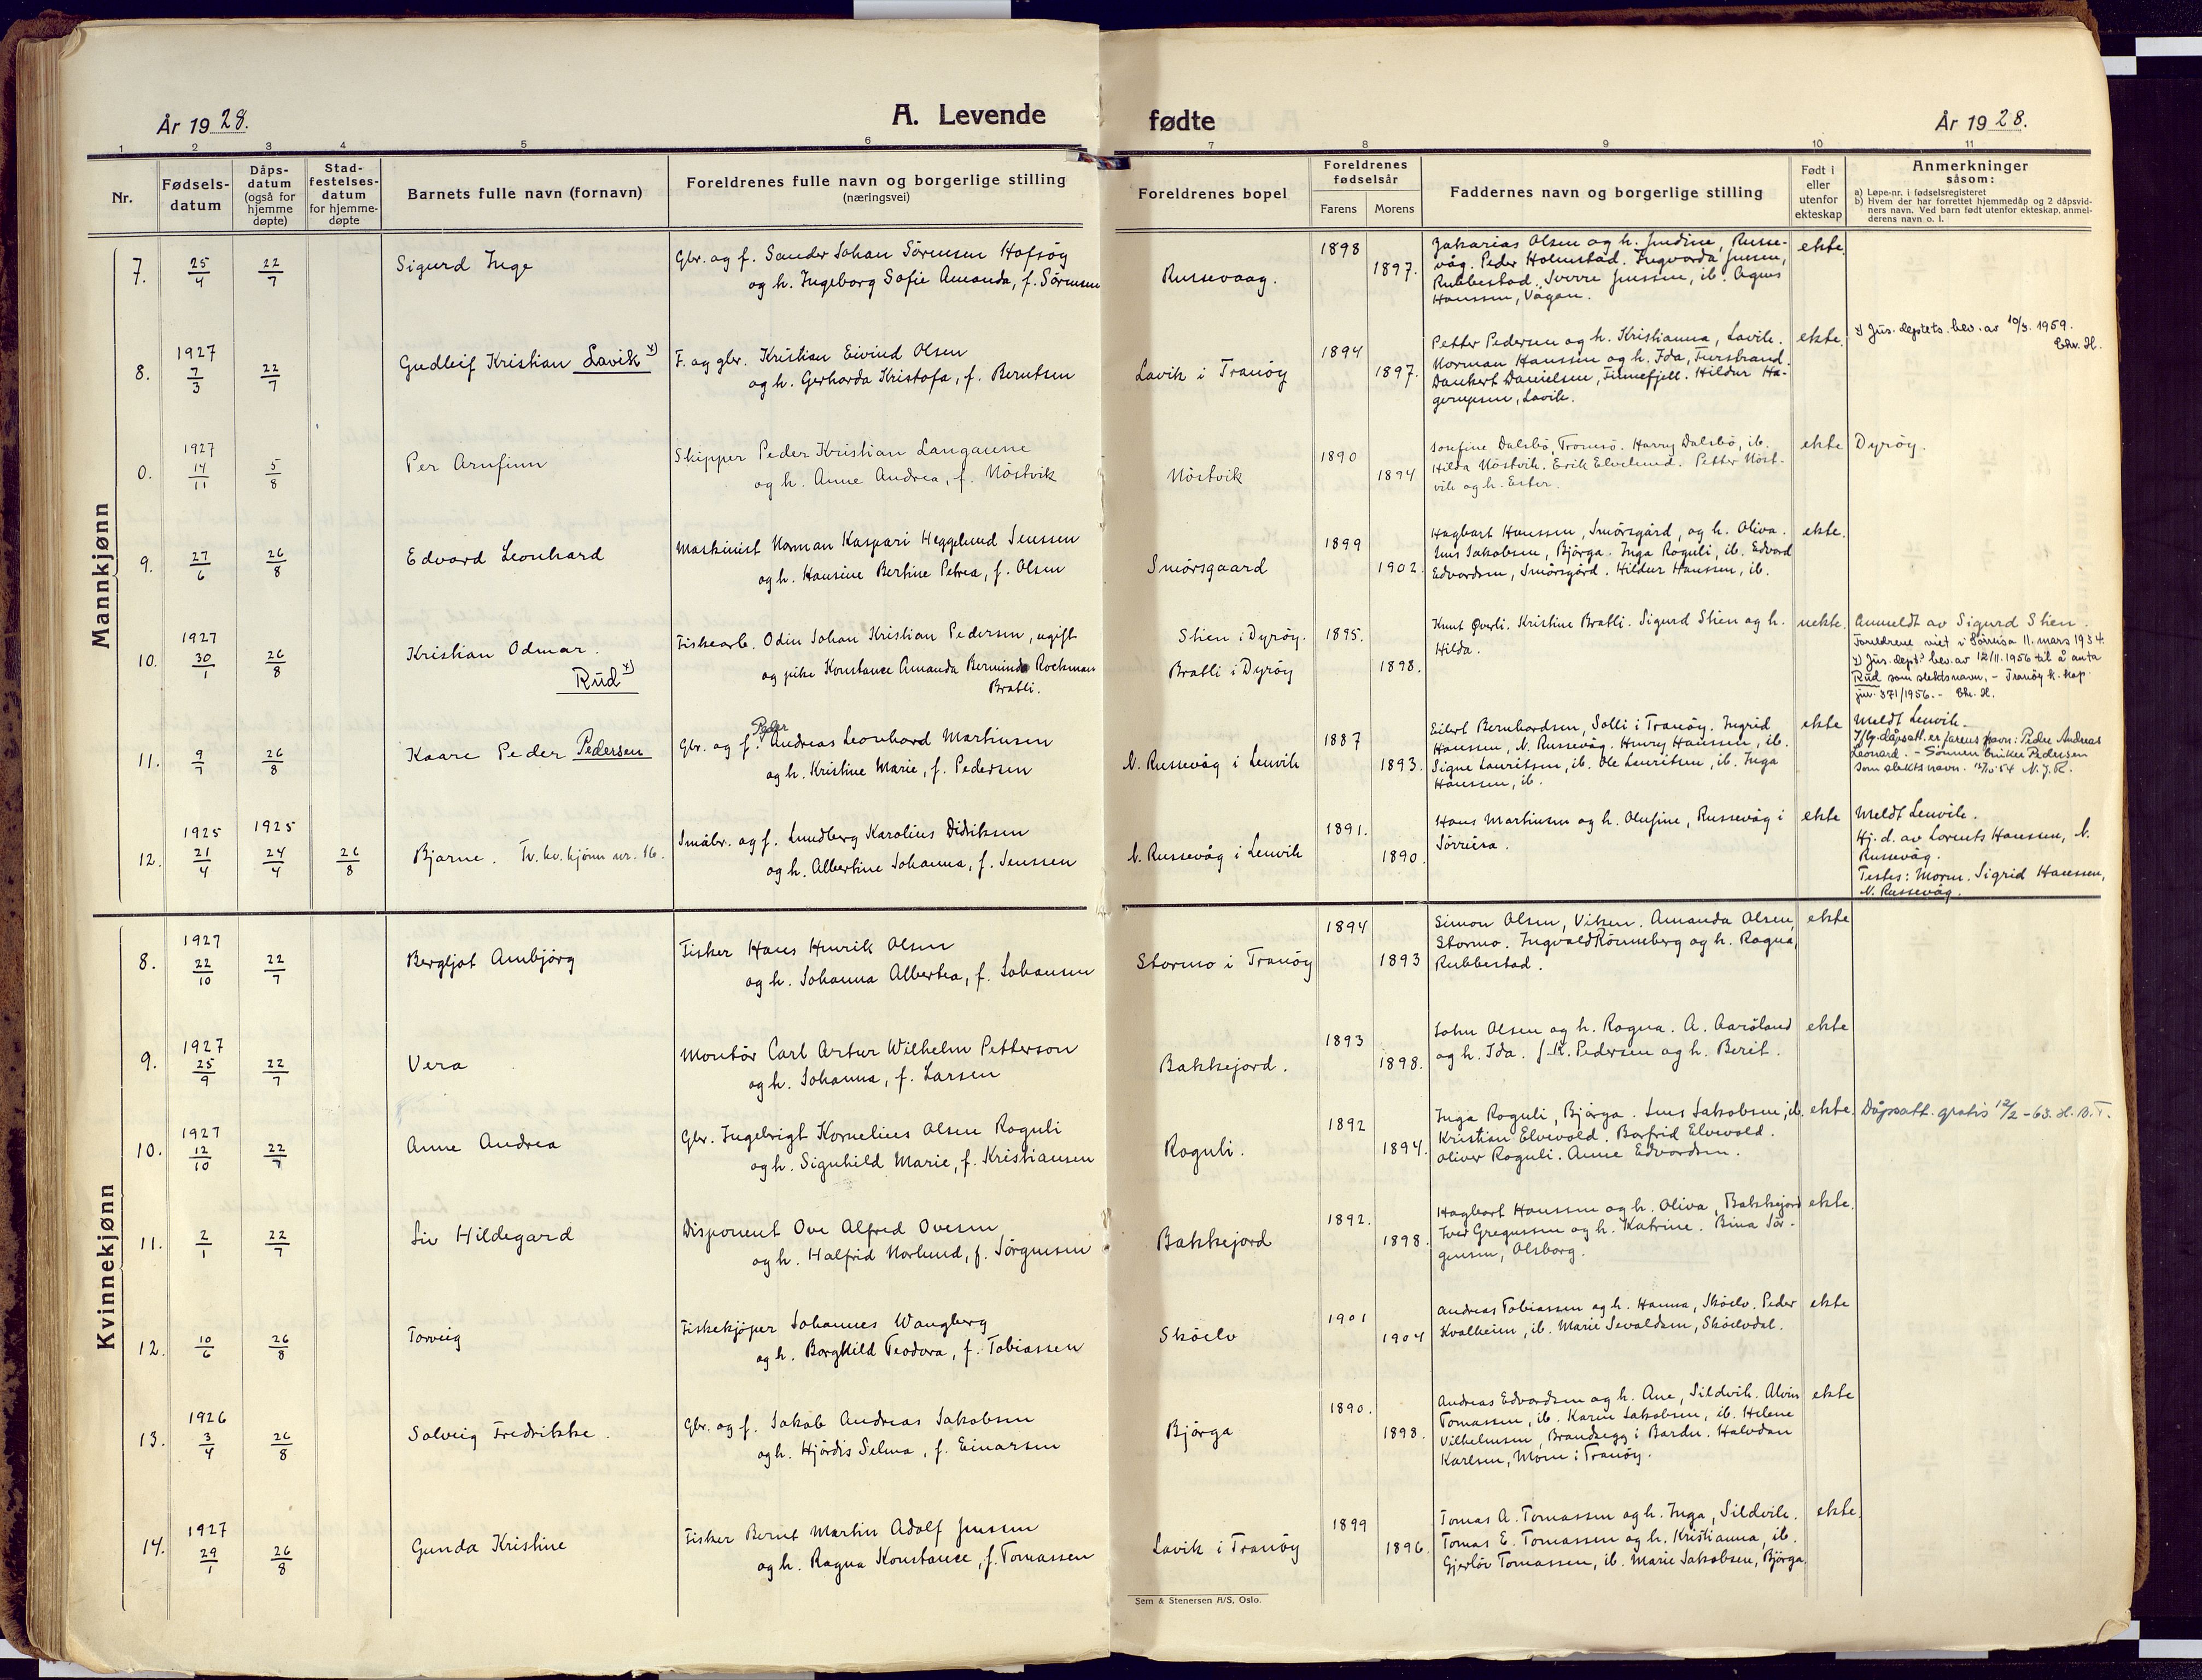 År 1928.
A. Levende
fødte
År 1928.
1 2 3 4 5 6 7 8 9 10 11
Nr.
Fødsels-
datum
Dåps-
datum
(også for
hjemme
døpte)
Stad-
festelses-
datum
for hjemme-
døpte
Barnets fulle navn (fornavn)
Foreldrenes fulle navn og borgerlige stilling
(næringsvei)
Foreldrenes bopel
Foreldrenes
fødselsår
Farens Morens
Faddernes navn og borgerlige stilling
Født i
eller
utenfor
ekteskap
Anmerkninger
såsom:
a) Løpe-nr. i fødselsregisteret
b) Hvem der har forrettet hjemmedåp og 2 dåpsvid-
ners navn. Ved barn født utenfor ekteskap, anmel-
derens navn o. l.
Mannkjønn
7. 25/4 22/7 Sigurd Inge
Gbr. og f. Sander Johan Sörensen Hofsöy
og h. Ingeborg Sofie Amanda, f. Sörensen
Russevaag.
1898
1897.
Zakarias Olsen og h. Jendine, Russe-
våg. Peder Holmstad. Ingvarda Jensen,
Rubbestad. Sverre Jenssen, ib. Agnes
Hanssen, Vågan.
ekte.
8. 1927 7/3 22/7 Gudleif Kristian Lavik x)
F. og gbr. Kristian Eivind Olsen
og h. Gerharda Kristofa, f. Berntsen
Lavik i Tranöy
1894
1897.
Petter Pedersen og h. Kristianna, Lavik.
Norman Hanssen og h. Ida, Furstrand
Dankert Danielsen, Finnefjell. Hildur Ha-
gerupsen, Lavik.
ekte.
x) Jus. deptets. bev. av 10/3. 1959.
Ekv. H.
0. 1927 14/11 5/8 Per Arnfinn
Skipper Peder Kristian Langaune
og h. Anne Andrea, f. Nöstvik
Nöstvik
1890
1894
Jonfine Dalsbö, Tromsö. Harry Dalsbö, ib.
Hilda Nöstvik. Erik Elvelund. Petter Nöst-
vik og h. Ester.
ekte
Dyröy.
9. 27/6 26/8 Edvard Leonhard
Maskinist Norman Kaspari Heggelund Jenssen
og h. Hansine Bertine Petrea, f. Olsen
Smörsgaard
1899
1902.
Hagbart Hanssen, Smörsgård, og h. Oliva.
Jens Jakobsen, Bjórga. Inga Roguli, ib. Edvard
Edvardsen, Smörsgård. Hildur Hanssen, ib.
ekte.
10. 1927 30/1 26/8 Kristian Odmar.
Rud x)
Fiskearb. Odin Johan Kristian Pedersen, ugift
og pike Konstance Amanda Berminda Rockman
Bratli.
Stien i Dyröy.
Bratli i Dyröy
1895.
1898.
Knut Överli. Kristine Bratli. Sigurd Stien og h.
Hilda.
uekte.
Anmeldt av Sigurd Stien.
Foreldrene viet i Sørreisa 11. mars 1934.
x) Jus. dept.s bev. av 12/11. 1956 til å anta
Rud som slektsnavn. - Tranöy k. kap.
jnr. 371/1956. - Ekv. H.
11. 9/7 26/8 Kaare Peder Pedersen
Peder
Gbr. og f. Andreas Leonhard Martinsen
og h. Kristine Marie, f. Pedersen
N. Russevåg i Lenvik
1887
1893.
Eilert Bernhardsen, Solli i Tranöy. Ingrid
Hanssen, N. Russevåg. Henry Hanssen, ib.
Signe Lauritsen, ib. Ole Lauritsen, ib. Inga
Hanssen, ib.
ekte
Meldt Lenvik.
Iflg. dåpsatt. er farens navn: Peder Andreas
Leonard. - Sønnen bruker Pedersen
som slektsnavn. N.J.R.
12. 1925 21/4 1925 24/4 26/8 Bjarne. Tv. kv. kjönn nr. 16.
Småbr. og f. Lundberg Karolius Didriksen
og h. Albertine Johanna, f. Jenssen
N. Russevåg i Lenvik
1891.
1890.
Hans Martinsen og h. Olufine, Russevåg i
Sörreisa.
ekte
Meldt Lenvik.
Hj. d. av Lorents Hanssen, N.
Russevåg.
Testes: Morm. Sigrid Hanssen,
N. Russevåg.
Kvinnekjønn
8. 1927 22/10 22/7 Bergljot Ambjörg
Fisker Hans Henrik Olsen
og h. Johanna Albertea, f. Johansen
Stormo i Tranöy
1894
1893
Simon Olsen, Viken. Amanda Olsen,
Stormo. Ingvald Rönneberg og h. Ragna,
Rubbestad.
ekte
9. 1927 25/9 22/7 Vera
Montör Carl Artur Wilhelm Petterson
og h. Johanna, f. Larsen
Bakkejord.
1893
1898.
John Olsen og h. Ragna. A. Aaröland
og h. Ida. J. K. Pedersen og h. Berit.
ekte
10. 1927 12/10 22/7 Anne Andrea
Gbr. Ingebrigt Kornelius Olsen Roguli
og h. Signhild Marie, f. Kristiansen
Roguli.
1892
1894.
Inga Roguli, Bjórga. Jens Jakobsen, ib.
Kristian Elvevold. Borfrid Elvevold.
Oliver Roguli. Anne Edvardsen.
ekte.
Dåpsatt. gratis 12/2-63. H.B.T.
11. 2/1 22/7 Liv Hildegard
Disponent Ove Alfred Ovesen
og h. Halfrid Norlund, f. Jörgensen
Bakkejord
1892.
1898.
Hagbart Hanssen og h. Oliva, Bakkejord
Tved Gregussen og h. Katrine. Bina Jör-
gensen, Olsborg.
ekte.
12. 10/6 26/8 Torveig
Fiskekjöper Johannes Wangberg
og h. Borghild Teodora, f. Tobiassen
Sköelv
1901
1904
Andreas Tobiassen og h. Hanna, Sköelv. Peder
Kvalheim, ib. Marie Sevaldsen, Sköelvdal.
ekte
13. 1926 3/4 26/8 Solveig Fredrikke.
Gbr. og f. Jakob Andreas Jakobsen
og h. Hjördis Selma, f. Einarsen
Bjórga
1890.
1898.
Andreas Edvardsen og h. Ane, Sildvik. Alvin
Tomassen, ib. Karen Jakobsen, ib. Helene
Vilhelmsen, Brandsegg i Bardu. Halvdan
Karlsen, Moen i Tranöy.
ekte
14. 1927 29/1 26/8 Gunda Kristine
Fisker Bernt Martin Adolf Jenssen
og h. Ragna Konstance, f. Tomassen
Lavik i Tranöy
1899
1896.
Tomas A. Tomassen og h. Inga, Sildvik.
Tomas E. Tomassen og h. Kristianna, ib.
Gjerlöv Tomassen, ib. Marie Jakobsen, Bjórga.
ekte.
Sem & Stenersen A/S, Oslo.